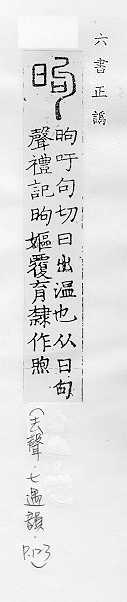 六書正譌
昫
昫吁句切日出温也从日句
聲禮記昫嫗覆育隸作煦
(去聲·七遇韻·
P.173)